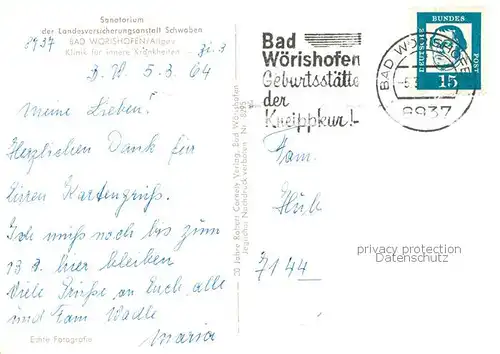 Sanatorium
der Landesversicherungsanstalt Schwaben
8937 BAD WÖRISHOFEN/Allgäu
Klinik für innere Krankheiten
B. W. 5. 3. 64
Meine Lieben!
Herzlichen Dank für
Euren Kartengruß.
Ich muß noch bis zum
13 d. hier bleiben
Viele Grüße an Euch alle
und Fam Wadle
Maria
Echte Fotografie
20 Jahre Robert Cordels Verlag, Bad Wörishofen
Jeglicher Nachdruck verboten Nr.
Bad
Wörishofen
Geburtsstätte
der
Kneippkur!
DEUTSCHE BUNDESPOST
15
BAD WÖRISHOFEN
8937
Fam.
7144
privacy protection
Datenschutz